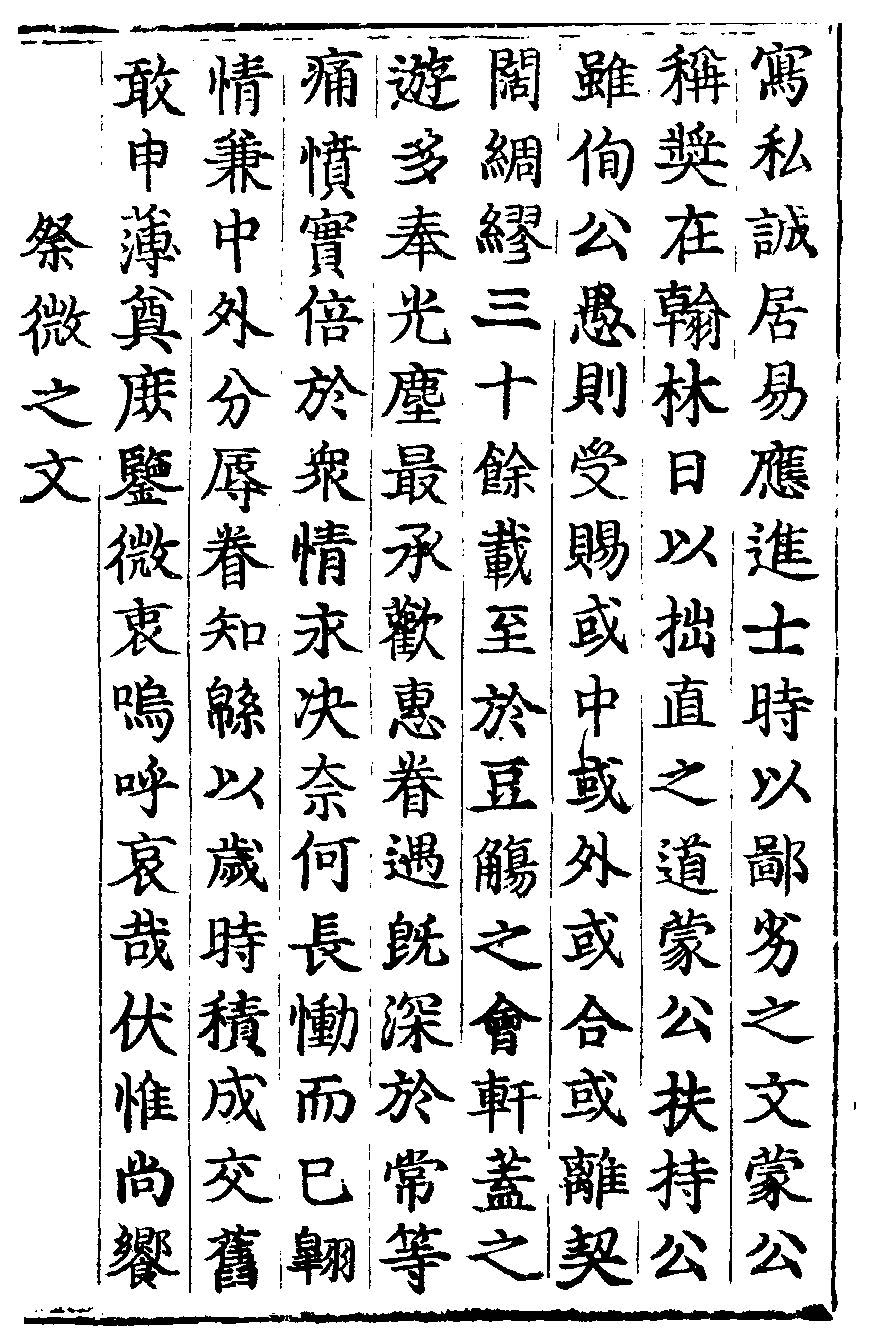 寫私誠居易應進士時以鄙劣之文蒙公
稱奬在翰林日以拙直之道蒙公扶持公
雖徇公愚則受賜或中或外或合或離契
闊綢繆三十餘載至於豆觴之會軒蓋之
遊多奉光塵最承歡惠眷遇旣深於常等
痛憤實倍於衆情永决奈何長慟而已翺
情兼中外分辱眷知緜以歲時積成交舊
敢申薄奠庶鑒微衷嗚呼哀哉伏惟尚饗
祭微之文